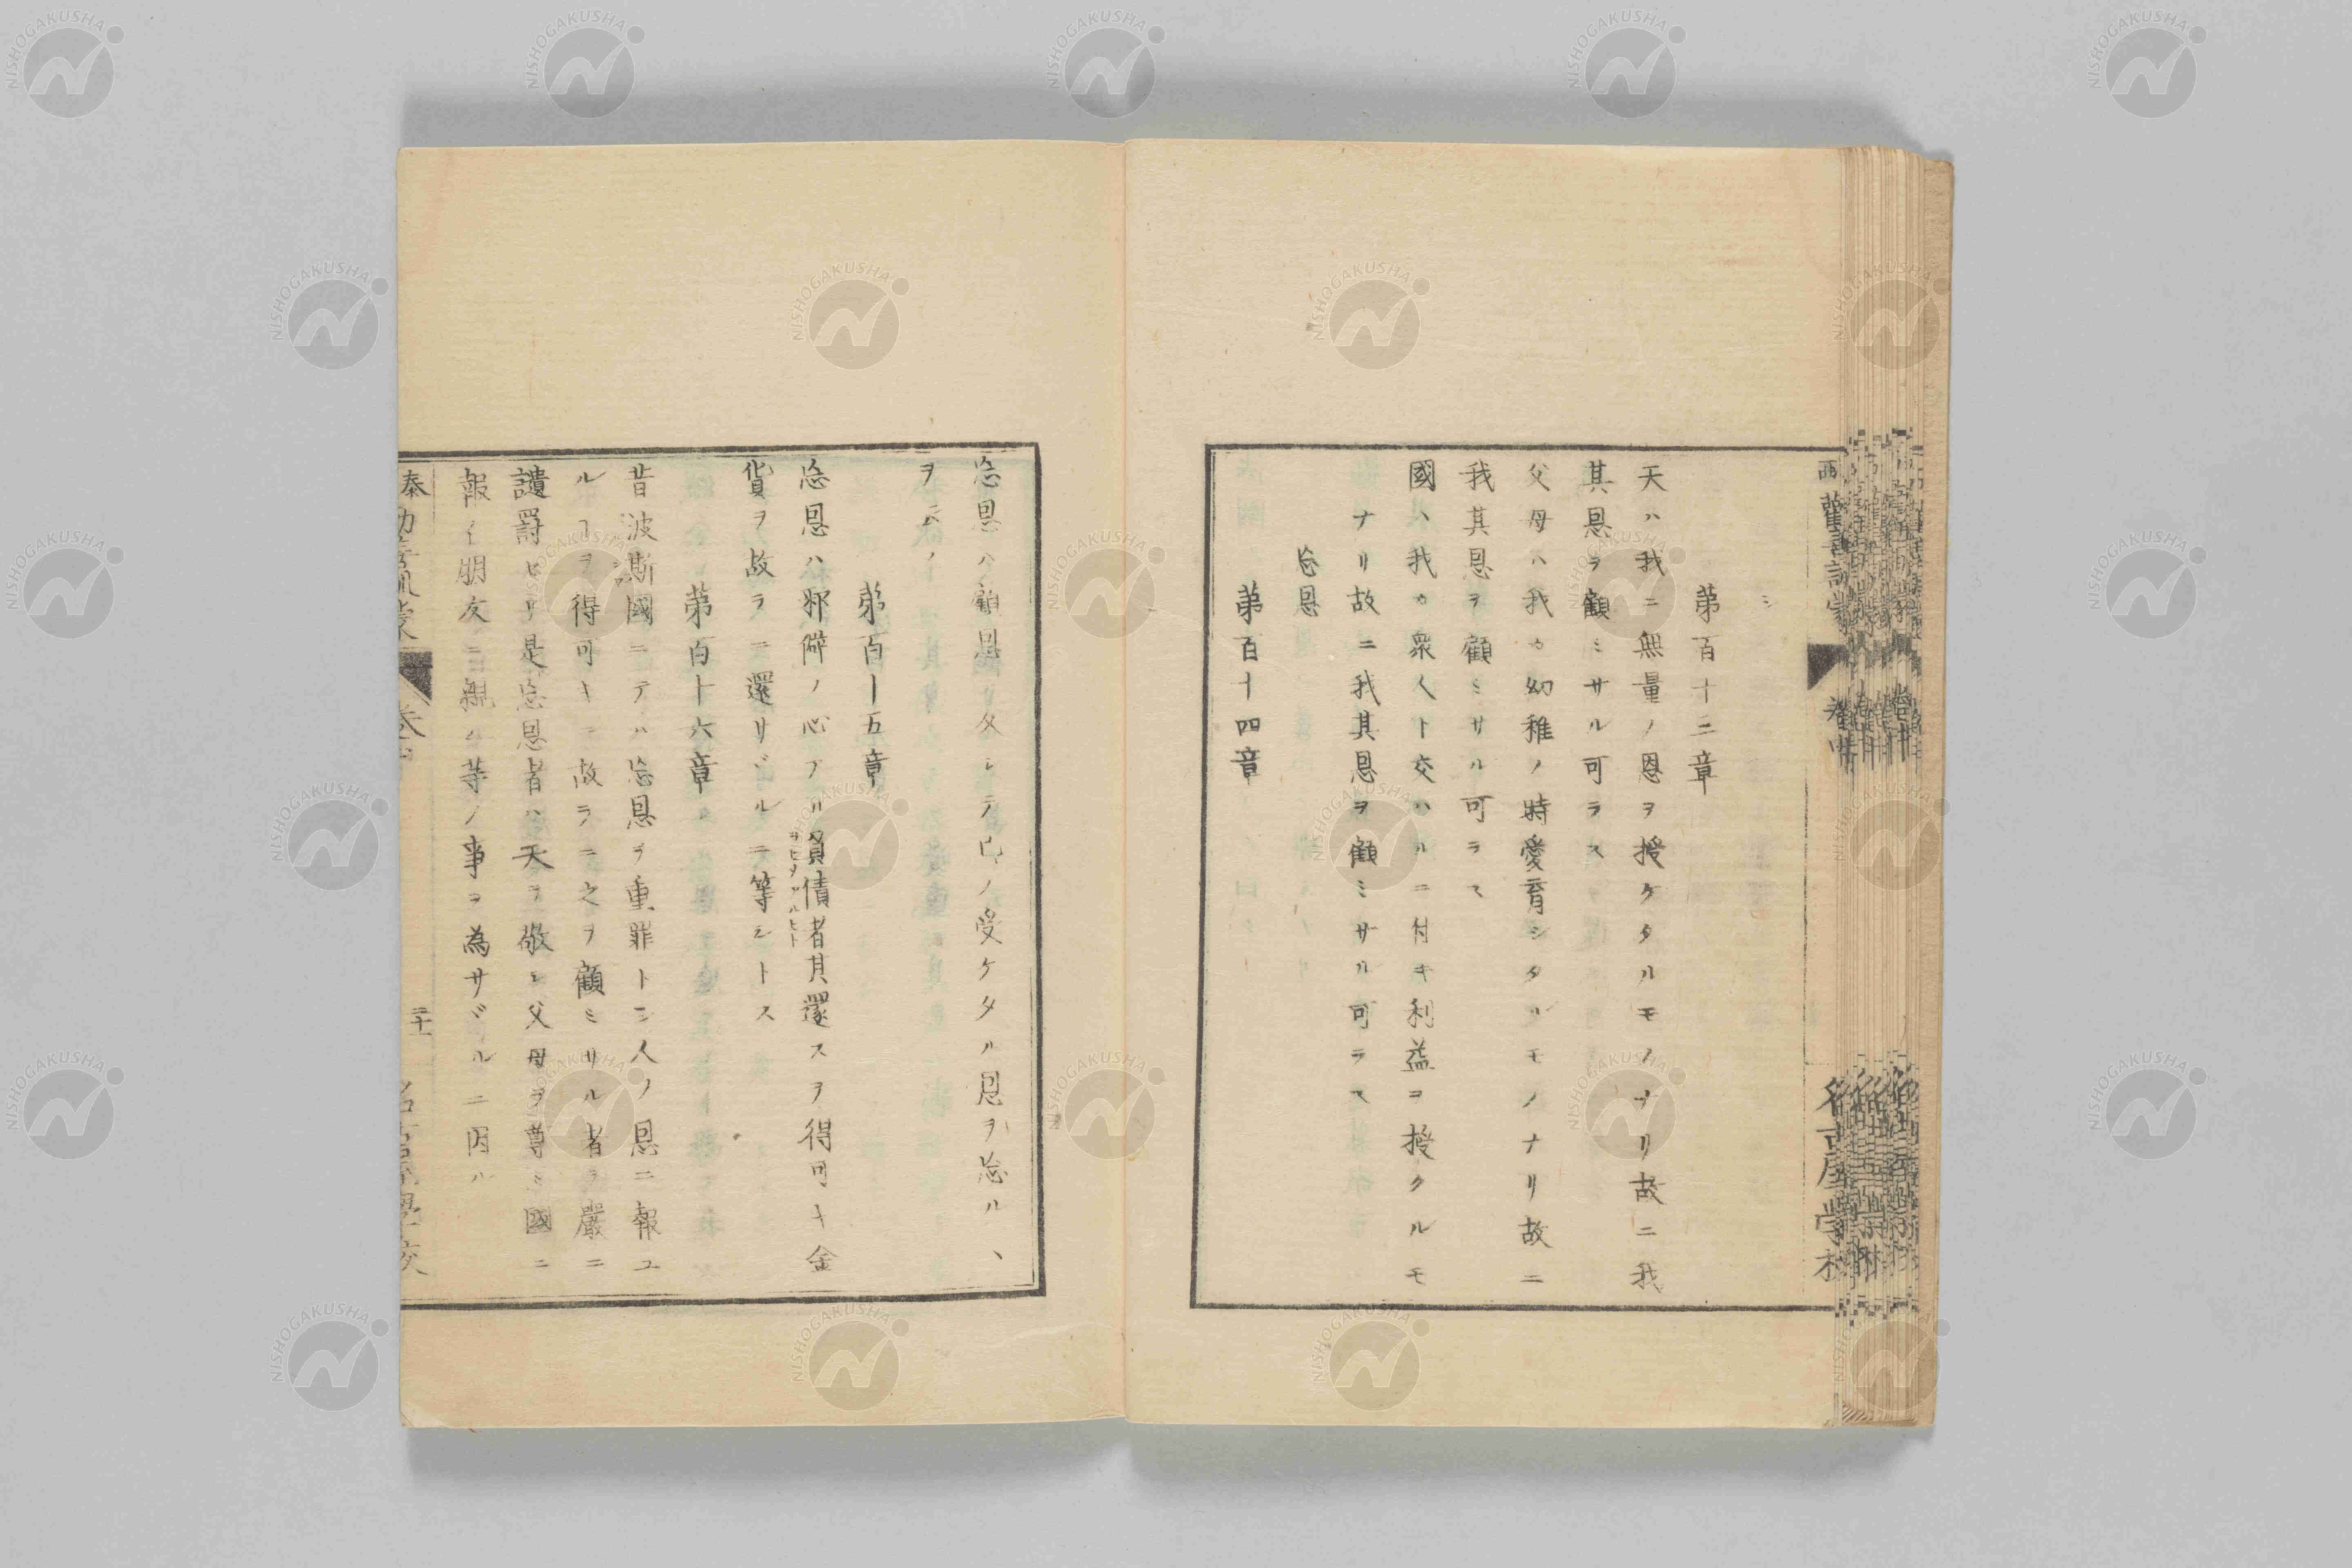 ミ
第百十三章
天ハ我ニ無量ノ恩ヲ授ケタルモノナリ故ニ我
其恩ヲ顧ミサル可ラス
父母ハ我カ幼稚ノ時愛育シタルモノナリ故ニ
我其恩ヲ顧ミサル可ラス
國ハ我カ衆人ト交ハルニ付キ利益ヲ授クルモ
ナリ故ニ我其恩ヲ顧ミサル可ラス
忘恩
第百十四章
忘恩ハ顧恩ノ反ニシテ己ノ受ケタル恩ヲ忘ルヽ
ヲ云ノ
第百十五章
忘恩ハ邪僻ノ心アル負債者其還スヲ得可キ金
貨ヲ故ラニ還サヾルニ等シトス
第百十六章
昔波斯國ニテハ忘恩ヲ重罪トシ人ノ恩ニ報ユ
ルヿヲ得可キニ故ラニ之ヲ顧ミサル者ヲ嚴ニ
譴罰セリ是忘恩者ハ天ヲ敬シ父母ヲ尊ミ國ニ
報イ朋友ニ親ム等ノ事ヲ為サヾルニ因ル
名古屋學校
NISHOGAKUSHA